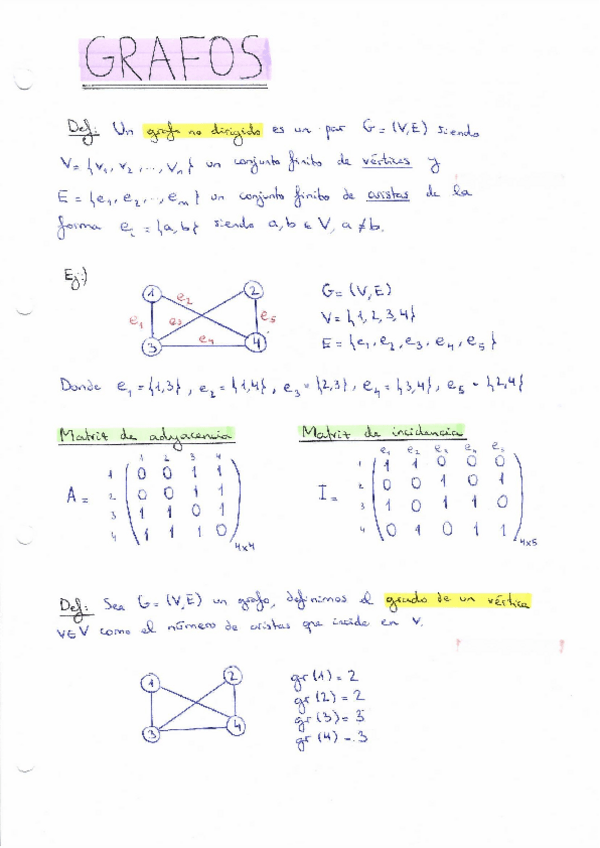 GRAFOS
Def: Un grafo no dirigido es un par G = (V,E) siendo
V = {v₁, v₂, ..., vₙ} un conjunto finito de vértices y
E = {e₁, e₂, ..., eₘ} un conjunto finito de aristas de la
forma eᵢ = {a,b} siendo a,b ∈ V, a ≠ b.
Ej:)
1 e₂ 2
e₁ e₃ e₅
e₄
3 4
G = (V,E)
V = {1,2,3,4}
E = {e₁, e₂, e₃, e₄, e₅}
Donde e₁ = {1,3}, e₂ = {1,4}, e₃ = {2,3}, e₄ = {3,4}, e₅ = {2,4}
Matriz de adyacencia
1 2 3 4
1 0 0 1 1
A = 2 0 0 1 1
3 1 1 0 1
4 1 1 1 0
4x4
Matriz de incidencia
e₁ e₂ e₃ e₄ e₅
1 1 1 0 0 0
I = 2 0 0 1 0 1
3 1 0 1 1 0
4 0 1 0 1 1
4x5
Def: Sea G = (V,E) un grafo, definimos el grado de un vértice
v∈V como el número de aristas que incide en v.
1 2
3 4
gr(1) = 2
gr(2) = 2
gr(3) = 3
gr(4) = 3